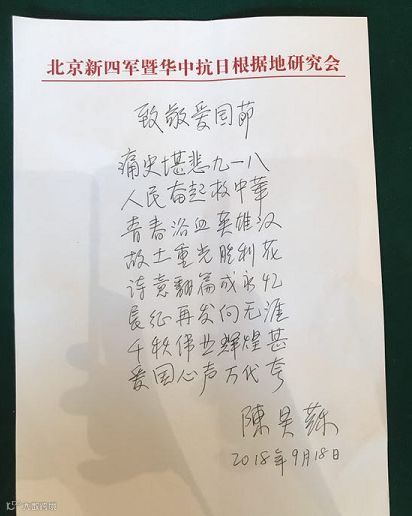 北京新四军暨华中抗日根据地研究会
致敬爱国节
痛史堪悲九一八
人民奋起救中華
青春浴血英雄汉
故土重光胜利花
诗意翻篇成永忆
長征再发向无涯
千秩伟业辉煌甚
爱国心声万代夸
陳昊蘇
2018年9月18日